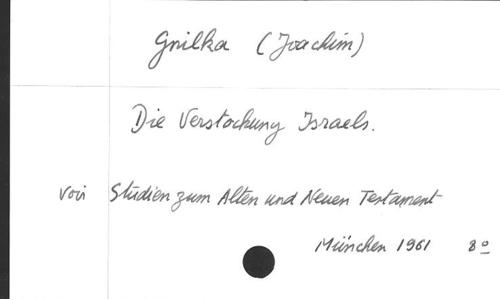 Gnilka (Joachim)
Die Verstockung Israels.
Voir Studien zum Alten und Neuen Testament
München 1961 8º